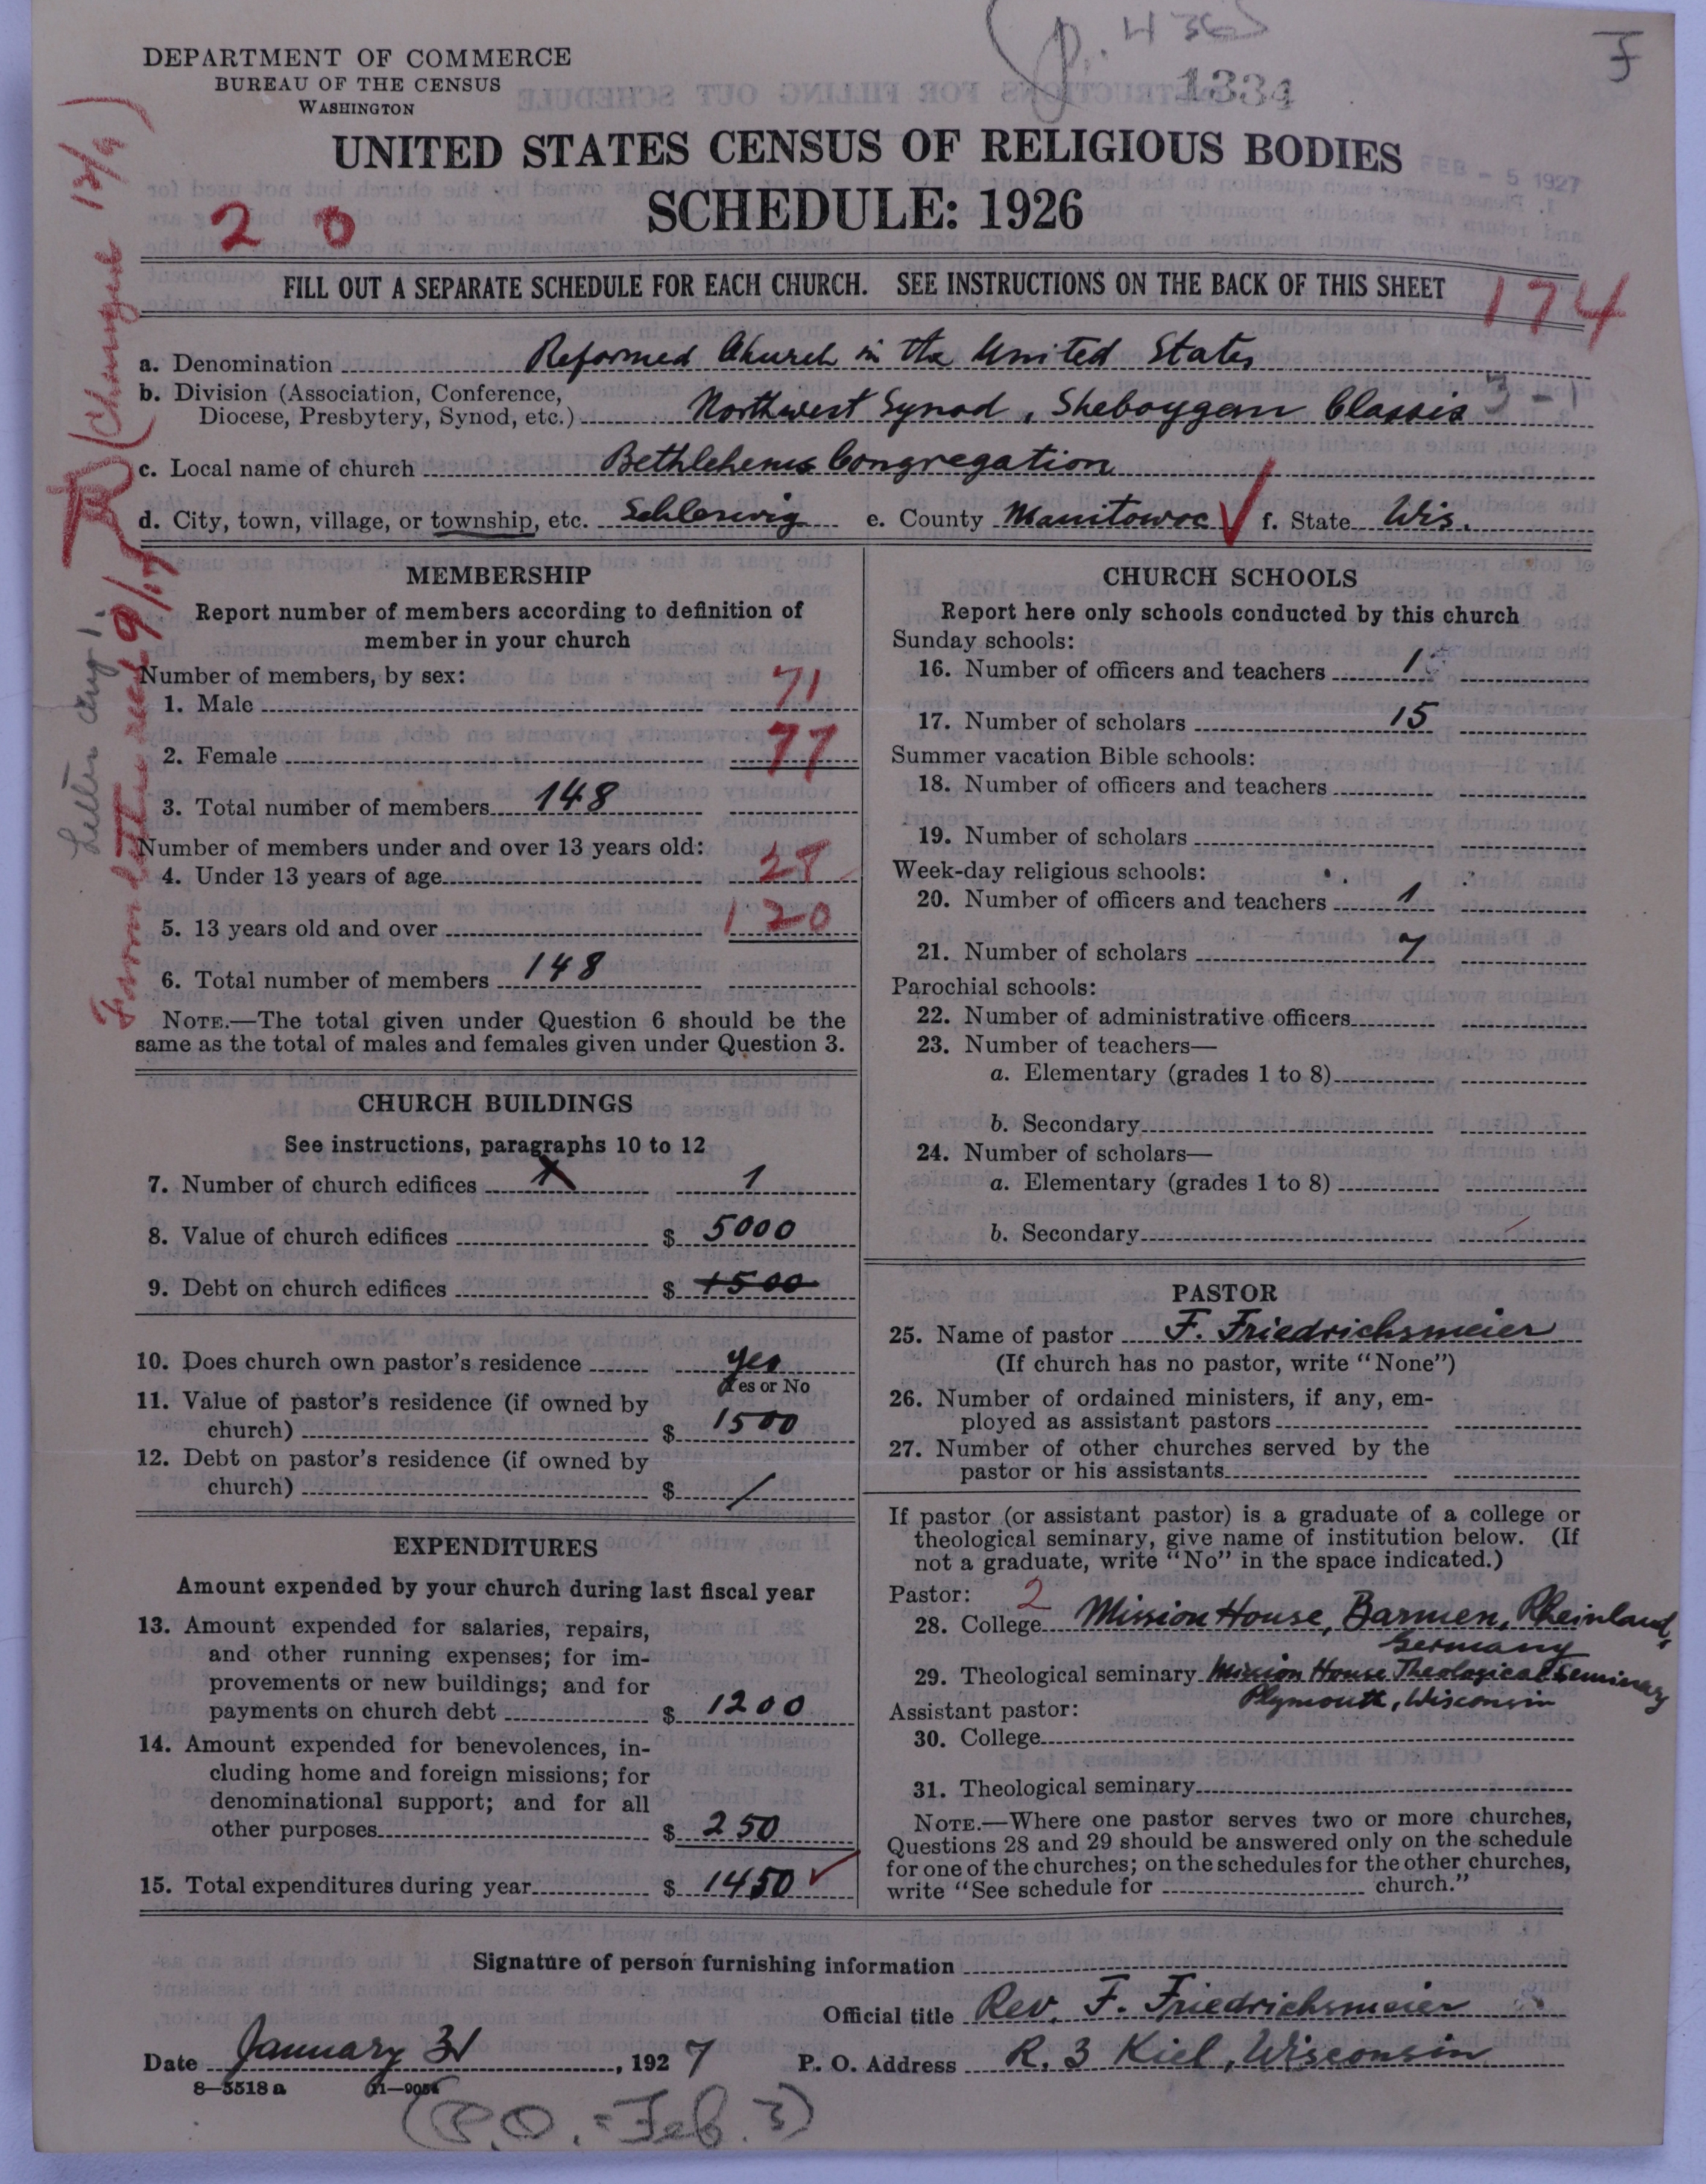 (p. 436)
F
DEPARTMENT OF COMMERCE
BUREAU OF THE CENSUS
WASHINGTON
1334
UNITED STATES CENSUS OF RELIGIOUS BODIES
FEB - 5 1927
SCHEDULE: 1926
2 0
FILL OUT A SEPARATE SCHEDULE FOR EACH CHURCH. SEE INSTRUCTIONS ON THE BACK OF THIS SHEET
174
a. Denomination Reformed Church in the United States
b. Division (Association, Conference,
Diocese, Presbytery, Synod, etc.) Northwest Synod, Sheboygan Classis 3-1
c. Local name of church Bethlehems Congregation
d. City, town, village, or township, etc. Schleswig e. County Manitowoc f. State Wis.
MEMBERSHIP
Report number of members according to definition of
member in your church
Number of members, by sex:
1. Male 71
2. Female 77
3. Total number of members 148
Number of members under and over 13 years old:
4. Under 13 years of age 28
5. 13 years old and over 120
6. Total number of members 148
NOTE.—The total given under Question 6 should be the
same as the total of males and females given under Question 3.
CHURCH BUILDINGS
See instructions, paragraphs 10 to 12
7. Number of church edifices 1
8. Value of church edifices $ 5000
9. Debt on church edifices $ 1500
10. Does church own pastor's residence yes
Yes or No
11. Value of pastor's residence (if owned by
church) $ 1500
12. Debt on pastor's residence (if owned by
church) $ /
EXPENDITURES
Amount expended by your church during last fiscal year
13. Amount expended for salaries, repairs,
and other running expenses; for im-
provements or new buildings; and for
payments on church debt $ 1200
14. Amount expended for benevolences, in-
cluding home and foreign missions; for
denominational support; and for all
other purposes $ 250
15. Total expenditures during year $ 1450 ✓
CHURCH SCHOOLS
Report here only schools conducted by this church
Sunday schools:
16. Number of officers and teachers 1
17. Number of scholars 15
Summer vacation Bible schools:
18. Number of officers and teachers
19. Number of scholars
Week-day religious schools:
20. Number of officers and teachers 1
21. Number of scholars 7
Parochial schools:
22. Number of administrative officers
23. Number of teachers—
a. Elementary (grades 1 to 8)
b. Secondary
24. Number of scholars—
a. Elementary (grades 1 to 8)
b. Secondary
PASTOR
25. Name of pastor F. Friedrichsmeier
(If church has no pastor, write "None")
26. Number of ordained ministers, if any, em-
ployed as assistant pastors
27. Number of other churches served by the
pastor or his assistants
If pastor (or assistant pastor) is a graduate of a college or
theological seminary, give name of institution below. (If
not a graduate, write "No" in the space indicated.)
Pastor: 2
28. College Mission House, Barmen, Rheinland,
Germany
29. Theological seminary Mission House Theological Seminary
Plymouth, Wisconsin
Assistant pastor:
30. College
31. Theological seminary
NOTE.—Where one pastor serves two or more churches,
Questions 28 and 29 should be answered only on the schedule
for one of the churches; on the schedules for the other churches,
write "See schedule for church."
Signature of person furnishing information
Official title Rev. F. Friedrichsmeier
Date January 31, 1927 P. O. Address R. 3 Kiel, Wisconsin
8—5518 a 11—9054
(P.O. = Feb. 3)
(Changed 12/9)
From letter rec'd 9/17
Letter Aug 1.